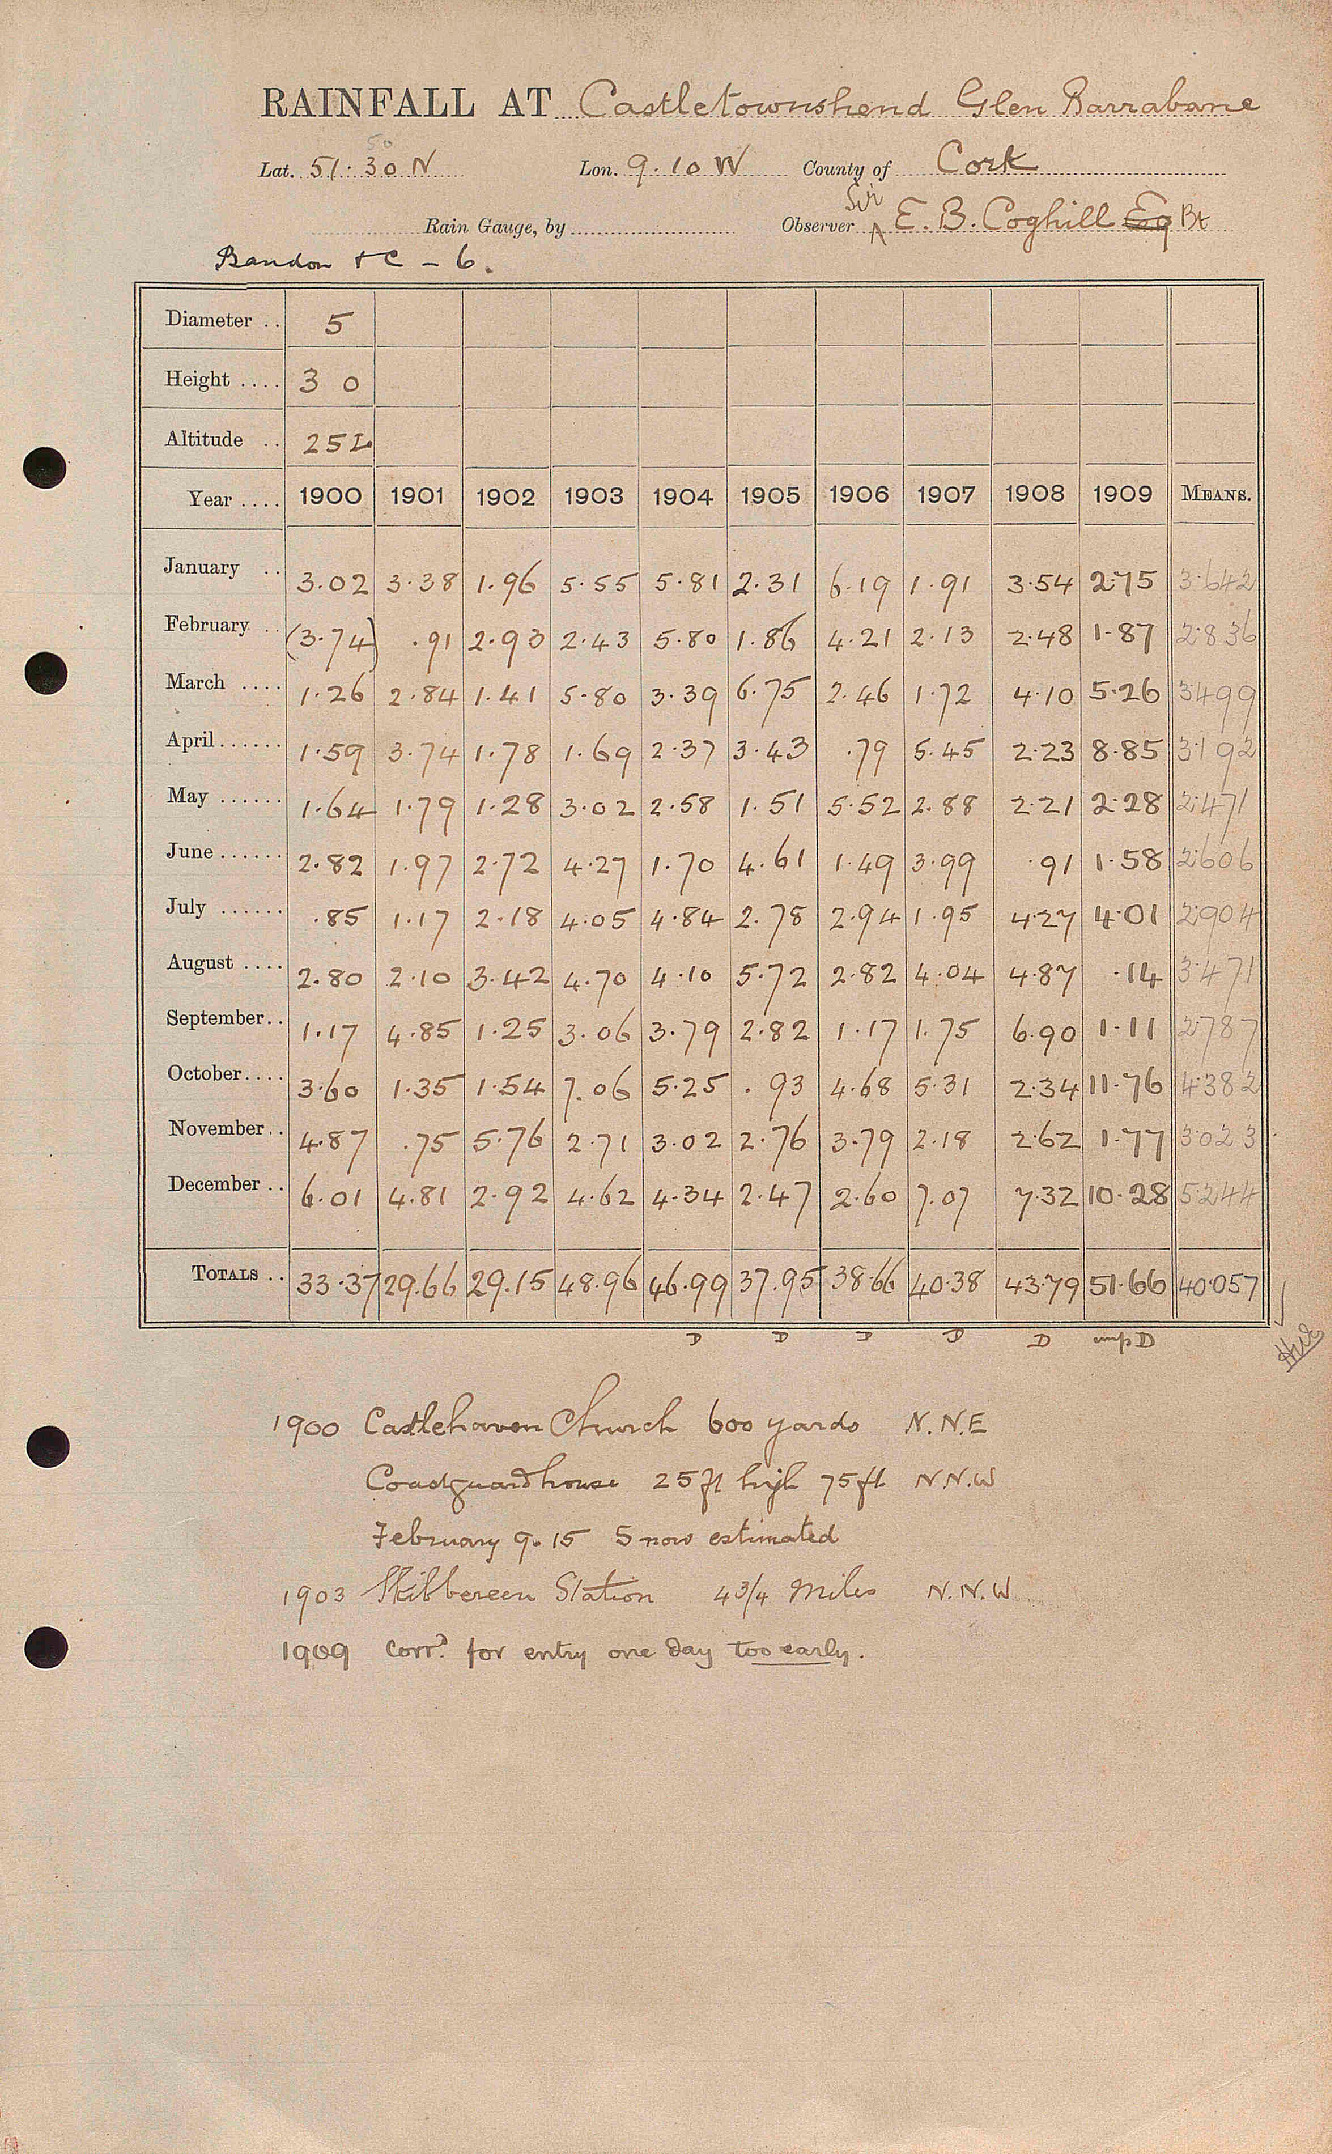 RAINFALL AT Castletownshend Glen Barrabane
50
Lat. 51.30 N Lon. 9.10 W County of Cork
Sir
Rain Gauge, by Observer E. B. Coghill Esq Bt
Bandon &c - 6.
Diameter .. 5
Height .... 3 0
Altitude .. 252
Year .... 1900 1901 1902 1903 1904 1905 1906 1907 1908 1909 MEANS.
January .. 3.02 3.38 1.96 5.55 5.81 2.31 6.19 1.91 3.54 2.75 3.642
February .. (3.74) .91 2.93 2.43 5.80 1.86 4.21 2.13 2.48 1.87 2.836
March .... 1.26 2.84 1.41 5.80 3.39 6.75 2.46 1.72 4.10 5.26 3499
April...... 1.59 3.74 1.78 1.69 2.37 3.43 .79 5.45 2.23 8.85 3192
May ...... 1.64 1.79 1.28 3.02 2.58 1.51 5.52 2.88 2.21 2.28 2.471
June...... 2.82 1.97 2.72 4.27 1.70 4.61 1.49 3.99 .91 1.58 2606
July ...... .85 1.17 2.18 4.05 4.84 2.78 2.94 1.95 4.27 4.01 2904
August .... 2.80 2.10 3.42 4.70 4.10 5.72 2.82 4.04 4.87 .14 3.471
September.. 1.17 4.85 1.25 3.06 3.79 2.82 1.17 1.75 6.90 1.11 2787
October.... 3.60 1.35 1.54 7.06 5.25 .93 4.68 5.31 2.34 11.76 4.382
November.. 4.87 .75 5.76 2.71 3.02 2.76 3.79 2.18 2.62 1.77 3023
December .. 6.01 4.81 2.92 4.62 4.34 2.47 2.60 7.07 7.32 10.28 5244
TOTALS .. 33.37 29.66 29.15 48.96 46.99 37.95 38.66 40.38 43.79 51.66 40.057
D D D D D D
1900 Castlehaven Church 600 yards N.N.E
Coastguard house 25 ft high 75 ft N.N.W
February 9.15 Snow estimated
1903 Skibbereen Station 4 3/4 Miles N.N.W
1909 Corrd. for entry one day too early.